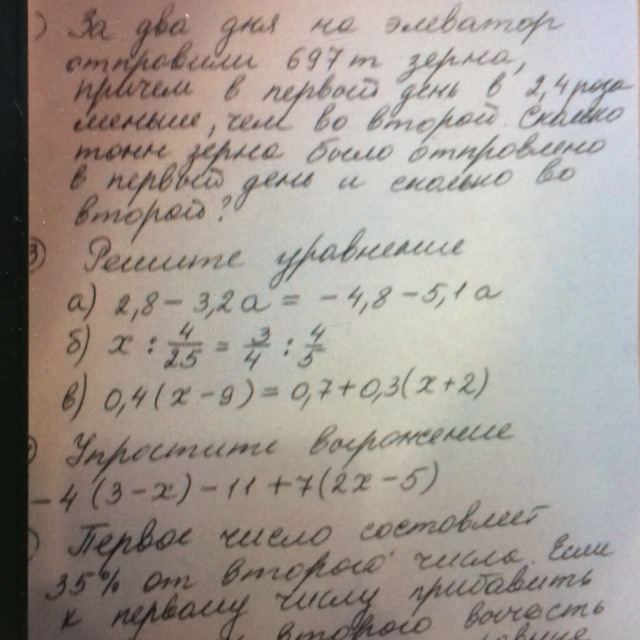 ) За два дня на элеватор
отправили 697 т зерна,
причем в первый день в 2,4 раза
меньше, чем во второй. Сколько
тонн зерна было отправлено
в первый день и сколько во
второй?
3) Решите уравнение
а) 2,8 - 3,2а = -4,8 - 5,1а
б) x : 4/25 = 3/4 : 4/5
в) 0,4(x-9) = 0,7+0,3(x+2)
) Упростите выражение
-4(3-x)-11+7(2x-5)
) Первое число составляет
35% от второго числа. Если
к первому числу прибавить
второго вычесть